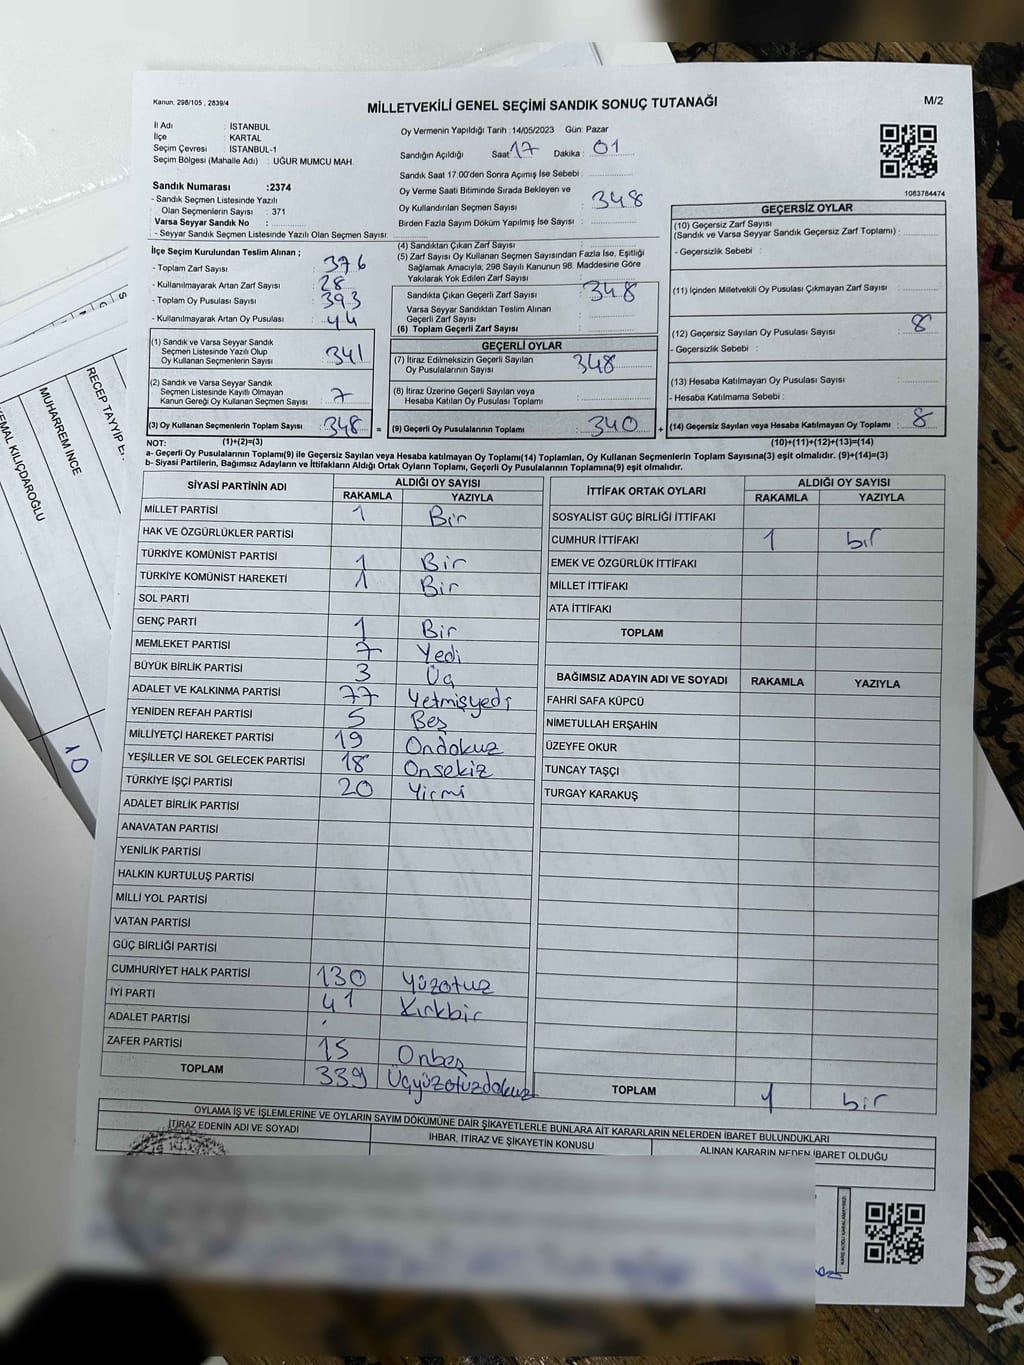 Kanun: 298/105 , 2839/4
MİLLETVEKİLİ GENEL SEÇİMİ SANDIK SONUÇ TUTANAĞI
M/2
İl Adı : İSTANBUL
İlçe : KARTAL
Seçim Çevresi : İSTANBUL-1
Seçim Bölgesi (Mahalle Adı) : UĞUR MUMCU MAH.
Sandık Numarası :2374
- Sandık Seçmen Listesinde Yazılı
Olan Seçmenlerin Sayısı : 371
Varsa Seyyar Sandık No :
- Seyyar Sandık Seçmen Listesinde Yazılı Olan Seçmen Sayısı:
Oy Vermenin Yapıldığı Tarih :14/05/2023 Gün: Pazar
Sandığın Açıldığı Saat: 17 Dakika : 01
Sandık Saat 17:00'den Sonra Açımış İse Sebebi :
Oy Verme Saati Bitiminde Sırada Bekleyen ve
Oy Kullandırılan Seçmen Sayısı : 348
Birden Fazla Sayım Döküm Yapılmış İse Sayısı :
1083784474
İlçe Seçim Kurulundan Teslim Alınan ;
- Toplam Zarf Sayısı : 376
- Kullanılmayarak Artan Zarf Sayısı : 28
- Toplam Oy Pusulası Sayısı : 393
- Kullanılmayarak Artan Oy Pusulası : 44
(1) Sandık ve Varsa Seyyar Sandık
Seçmen Listesinde Yazılı Olup
Oy Kullanan Seçmenlerin Sayısı : 341
(2) Sandık ve Varsa Seyyar Sandık
Seçmen Listesinde Kayıtlı Olmayan
Kanun Gereği Oy Kullanan Seçmen Sayısı : 7
(3) Oy Kullanan Seçmenlerin Toplam Sayısı : 348 =
(4) Sandıktan Çıkan Zarf Sayısı :
(5) Zarf Sayısı Oy Kullanan Seçmen Sayısından Fazla İse, Eşitliği
Sağlamak Amacıyla, 298 Sayılı Kanunun 98. Maddesine Göre
Yakılarak Yok Edilen Zarf Sayısı :
Sandıkta Çıkan Geçerli Zarf Sayısı : 348
Varsa Seyyar Sandıktan Teslim Alınan
Geçerli Zarf Sayısı :
(6) Toplam Geçerli Zarf Sayısı :
GEÇERLİ OYLAR
(7) İtiraz Edilmeksizin Geçerli Sayılan
Oy Pusulalarının Sayısı : 348
(8) İtiraz Üzerine Geçerli Sayılan veya
Hesaba Katılan Oy Pusulası Toplamı :
(9) Geçerli Oy Pusulalarının Toplamı : 340 +
GEÇERSİZ OYLAR
(10) Geçersiz Zarf Sayısı
(Sandık ve Varsa Seyyar Sandık Geçersiz Zarf Toplamı) :
- Geçersizlik Sebebi :
(11) İçinden Milletvekili Oy Pusulası Çıkmayan Zarf Sayısı :
(12) Geçersiz Sayılan Oy Pusulası Sayısı : 8
- Geçersizlik Sebebi :
(13) Hesaba Katılmayan Oy Pusulası Sayısı :
- Hesaba Katılmama Sebebi :
(14) Geçersiz Sayılan veya Hesaba Katılmayan Oy Toplamı : 8
NOT: (1)+(2)=(3) (10)+(11)+(12)+(13)=(14)
a- Geçerli Oy Pusulalarının Toplamı(9) ile Geçersiz Sayılan veya Hesaba katılmayan Oy Toplamı(14) Toplamları, Oy Kullanan Seçmenlerin Toplam Sayısına(3) eşit olmalıdır. (9)+(14)=(3)
b- Siyasi Partilerin, Bağımsız Adayların ve İttifakların Aldığı Ortak Oyların Toplamı, Geçerli Oy Pusulalarının Toplamına(9) eşit olmalıdır.
SİYASİ PARTİNİN ADI ALDIĞI OY SAYISI
RAKAMLA YAZIYLA
MİLLET PARTİSİ 1 Bir
HAK VE ÖZGÜRLÜKLER PARTİSİ
TÜRKİYE KOMÜNİST PARTİSİ 1 Bir
TÜRKİYE KOMÜNİST HAREKETİ 1 Bir
SOL PARTİ
GENÇ PARTİ 1 Bir
MEMLEKET PARTİSİ 7 Yedi
BÜYÜK BİRLİK PARTİSİ 3 Üç
ADALET VE KALKINMA PARTİSİ 77 Yetmişyedi
YENİDEN REFAH PARTİSİ 5 Beş
MİLLİYETÇİ HAREKET PARTİSİ 19 Ondokuz
YEŞİLLER VE SOL GELECEK PARTİSİ 18 Onsekiz
TÜRKİYE İŞÇİ PARTİSİ 20 Yirmi
ADALET BİRLİK PARTİSİ
ANAVATAN PARTİSİ
YENİLİK PARTİSİ
HALKIN KURTULUŞ PARTİSİ
MİLLİ YOL PARTİSİ
VATAN PARTİSİ
GÜÇ BİRLİĞİ PARTİSİ
CUMHURİYET HALK PARTİSİ 130 Yüzotuz
İYİ PARTİ 41 Kırkbir
ADALET PARTİSİ
ZAFER PARTİSİ 15 Onbeş
TOPLAM 339 Üçyüzotuzdokuz
İTTİFAK ORTAK OYLARI ALDIĞI OY SAYISI
RAKAMLA YAZIYLA
SOSYALİST GÜÇ BİRLİĞİ İTTİFAKI
CUMHUR İTTİFAKI 1 bir
EMEK VE ÖZGÜRLÜK İTTİFAKI
MİLLET İTTİFAKI
ATA İTTİFAKI
TOPLAM
BAĞIMSIZ ADAYIN ADI VE SOYADI RAKAMLA YAZIYLA
FAHRİ SAFA KÜPCÜ
NİMETULLAH ERŞAHİN
ÜZEYFE OKUR
TUNCAY TAŞÇI
TURGAY KARAKUŞ
TOPLAM 1 bir
OYLAMA İŞ VE İŞLEMLERİNE VE OYLARIN SAYIM DÖKÜMÜNE DAİR ŞİKAYETLERLE BUNLARA AİT KARARLARIN NELERDEN İBARET BULUNDUKLARI
İTİRAZ EDENİN ADI VE SOYADI
İHBAR, İTİRAZ VE ŞİKAYETİN KONUSU
ALINAN KARARIN NEDEN İBARET OLDUĞU
KEMAL KILIÇDAROĞLU
MUHARREM İNCE
RECEP TAYYİP
10